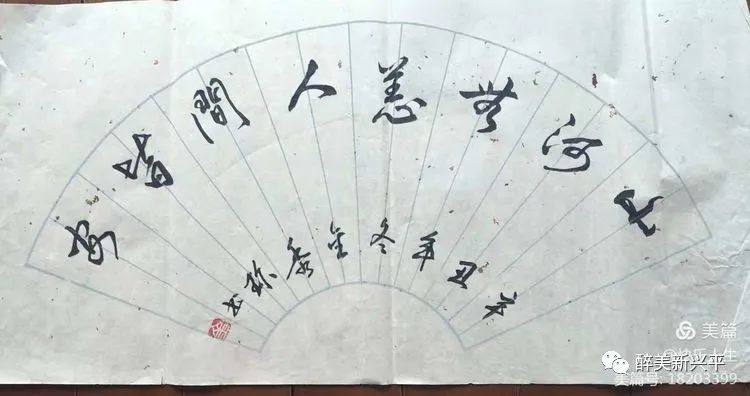 山河無恙人間皆安
辛丑年冬金泰珎书
美篇
醉美新兴平
美篇号: 18203399